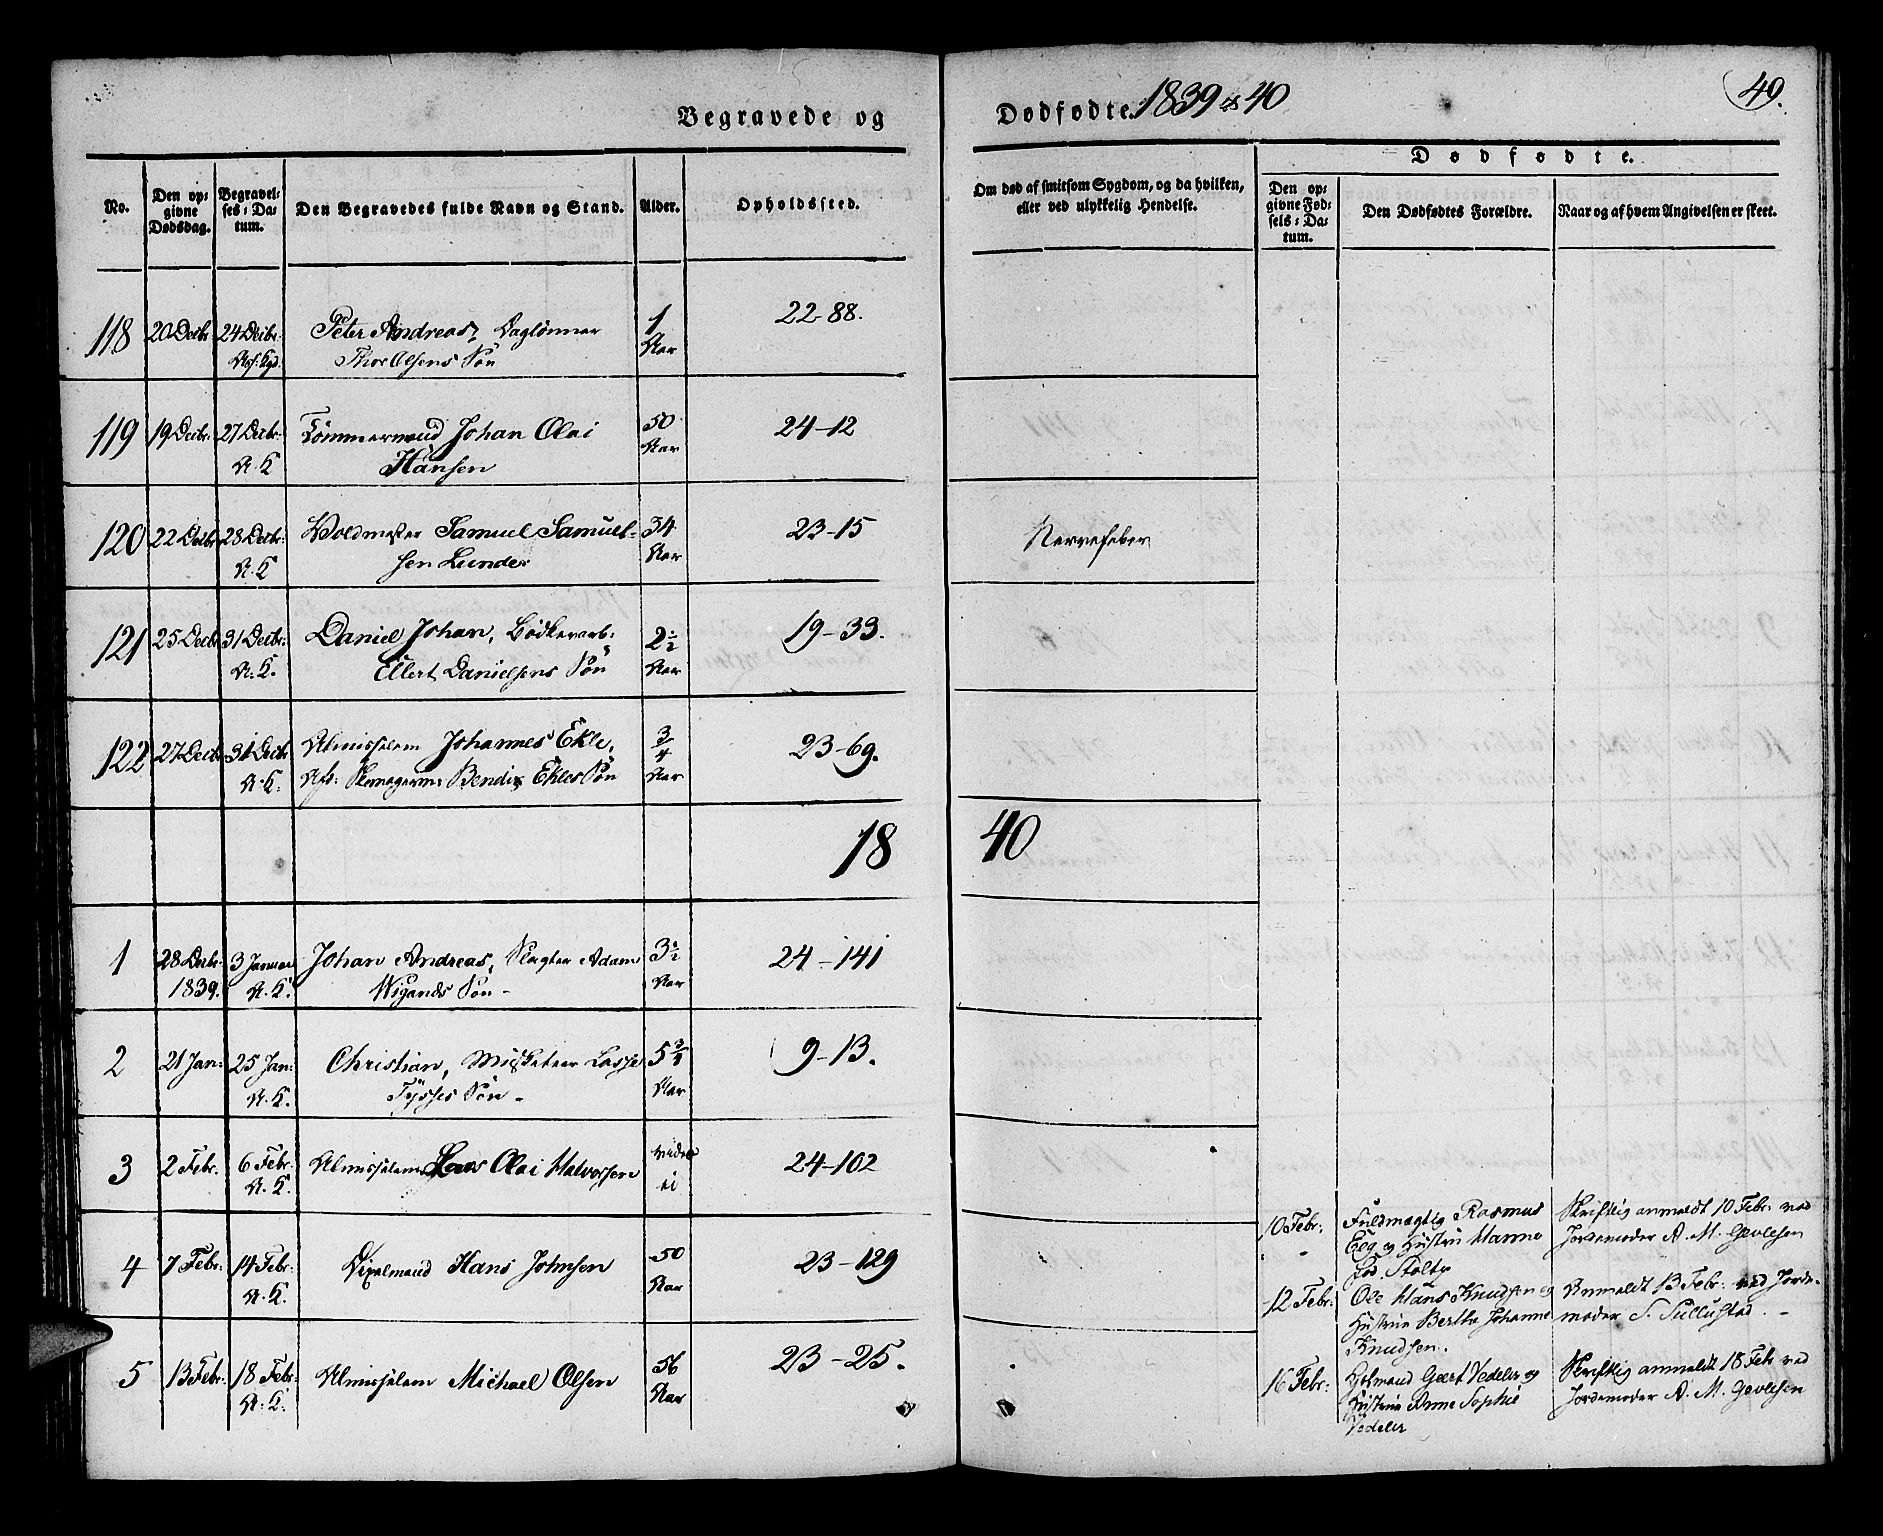 Begravede og
Dødfødte. 1839 & 40
49.
No.
Den op-
givne
Dødsdag.
Begravel-
ses-Da-
tum.
Den Begravedes fulde Navn og Stand.
Alder.
Opholdssted.
Om død af smitsom Sygdom, og da hvilken,
eller ved ulykkelig Hendelse.
Dødfødte.
Den op-
givne Fød-
sels-Da-
tum.
Den Dødfødtes Forældre.
Naar og af hvem Angivelsen er skeet.
118 20 Decbr. 24 Decbr. Peter Andreas, Daglønner 1 22-88.
Thor Olsens Søn Aar
119 19 Decbr. 27 Decbr. Tømmermand Johan Olai 50 24-12
A. K Hansen Aar
120 22 Decbr 28 Decbr. Voldmester Samuel Samuel- 34 23-15 Nervefeber
A. K sen Lunder Aar
121 25 Decbr 31 Decbr. Daniel Johan, Bødkerarb: 2½ 19-33.
A. K. Ellert Danielsens Søn Aar
122 27 Decbr 31 Decbr Almisselem Johannes Ekle, 3/4 23-69.
A. K. Afs. Skomagersv. Bendix Ekles Søn Aar
18 40
1 28 Decbr. 3 Januar Johan Andreas, Slagter Adam 3½ 24-141
1839. A. K. Wigands Søn - Aar
2 21 Jan: 25 Jan: Christian, Musketeer Lasse 5¾ 9-13.
A. K. Tysses Søn - Aar
3 2 Febr. 6 Febr. Almisselem Lars Olai Halvorsen 24-102
A. K.
4 7 Febr: 14 Febr: Hans Johnsen 50 23-129
A. K. Aar
5 13 Febr: 18 Febr: Almisselem Michael Olsen 56 23-25.
A. K. Aar
10 Febr: Fuldmægtig Rasmus Skriftlig anmeldt 10 Febr: ved
Eeg og Hustru Hanne Jordemoder A. M. Gevlesen
fød. Stolty
12 Febr: Ole Hans Knudsen og Anmeldt 13 Febr: ved Jorde-
Hustrue Berthe Johanne moder S. Sullustad. -
Knudsen.
16 Febr: Geert Vedeler og Skriftlig anmeldt 18 Febr ved
Hustrue Anne Sophie Jordemoder A. M. Gevlesen
Vedeler